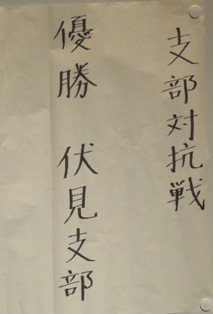 支部対抗戦
優勝 伏見支部